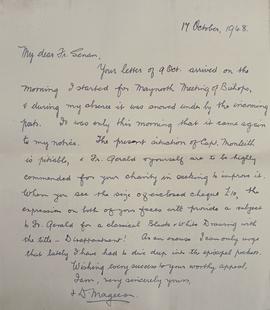 17 October, 1948.
My dear Fr. Senan,
Your letter of 9 Oct. arrived on the
morning I started for Maynooth Meeting of Bishops,
& during my absence it was snowed under by the incoming
posts. It was only this morning that it came again
to my notice. The present situation of Capt. Monteith
is pitiable, & Fr. Gerald & yourself are to be highly
commended for your charity in seeking to improve it.
When you see the size of enclosed cheque £10, the
expression on both of your faces will provide a subject
to Fr. Gerald for a classical Black & White Drawing with
the title - Disappointment! As an excuse I can only urge
that lately I have had to dive deep into the episcopal pockets.
Wishing every success to your worthy appeal,
I am, very sincerely yours,
+ D Mageean.